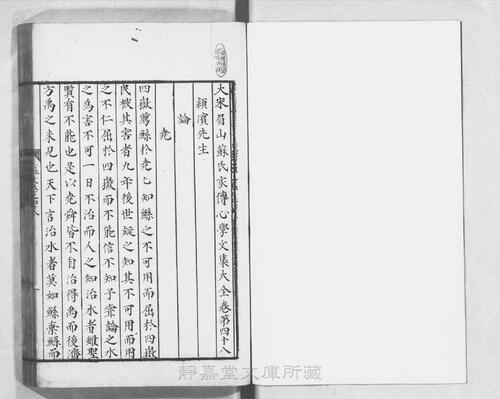 大宋眉山蘇氏家傳心學文集大全卷第四十八
潁濱先生
論
堯
四嶽薦鯀於堯乙知鯀之不可用而屈於四嶽
民被其害者九年後世疑之知其不可用而用
之不仁屈於四嶽而不能信不知予嘗論之水
之為害不可一日不治而人之知治水者雖聖
賢有不能也是以堯舜皆不自治得禹而後濟
方禹之未見也天下言治水者莫如鯀棄鯀而
靜嘉堂文庫所藏